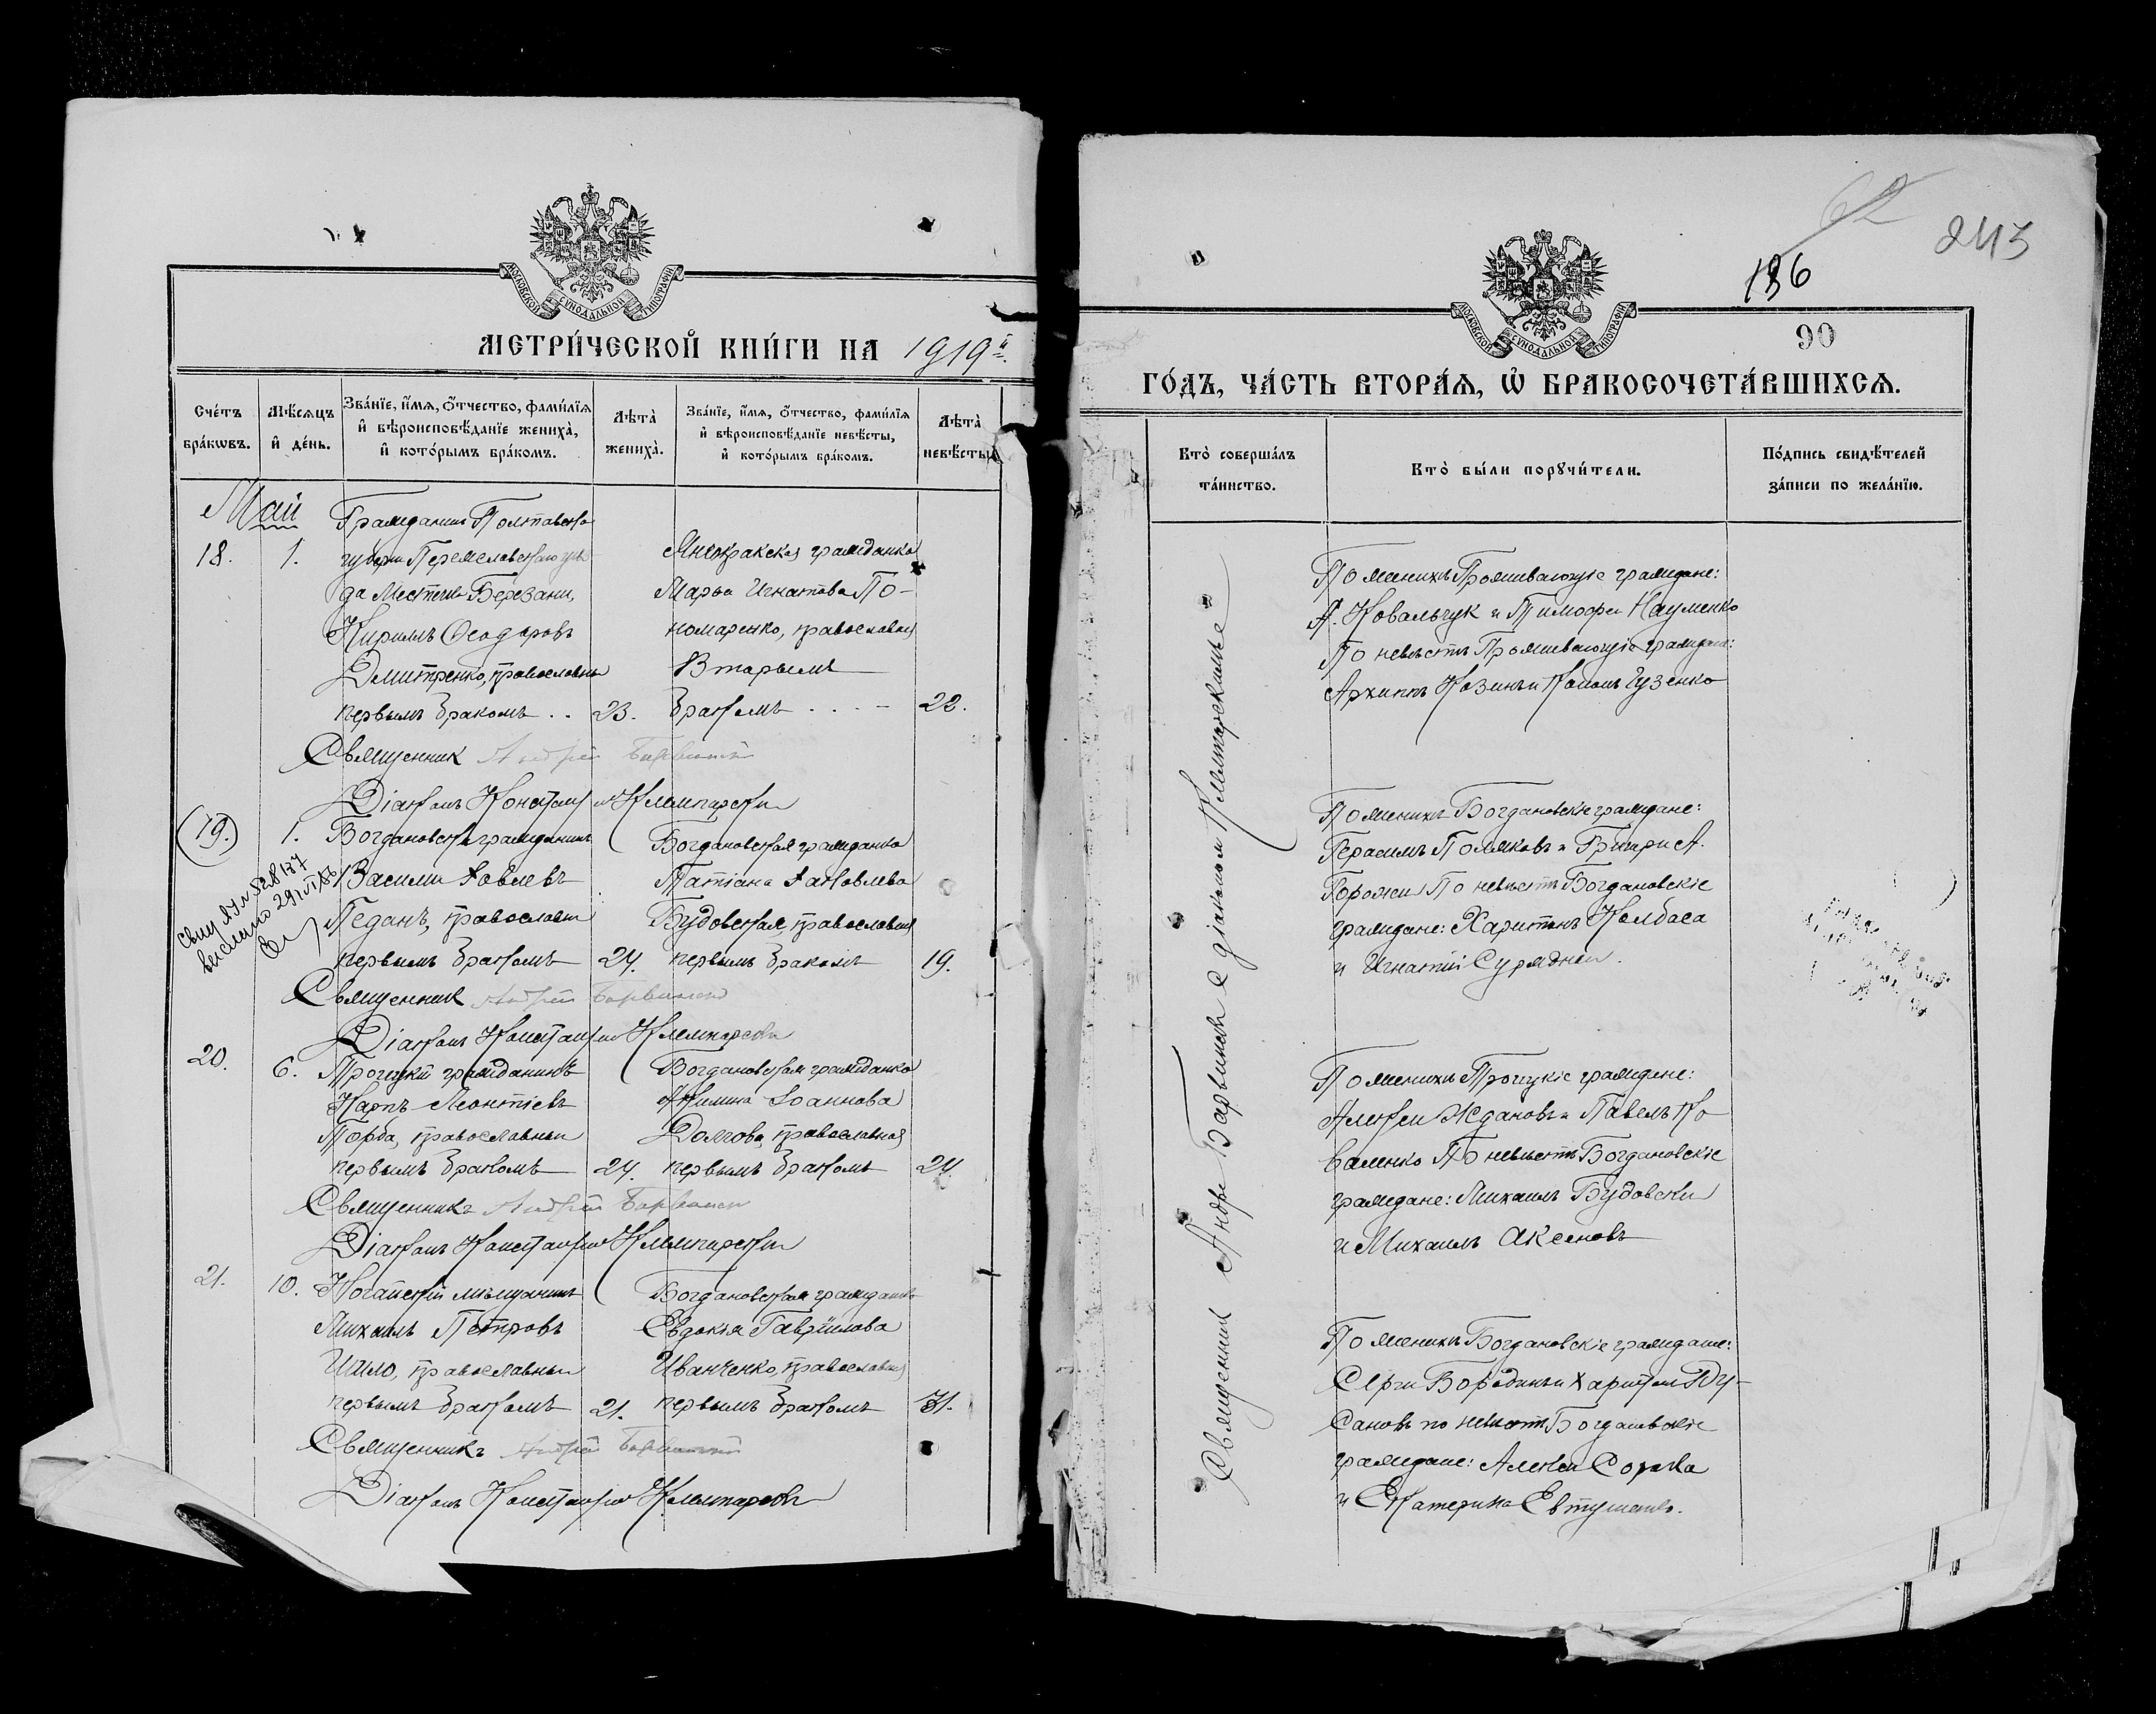 МОСКОВСКОЙ СѴНОДАЛЬНОЙ ТИПОГРАФІИ
МЕТРИ́ЧЕСКОЙ КНИ́ГИ НА 1919й
Сче́тъ бра́кѡвъ.
Мѣ́сѧцъ и҆ де́нь.
Зва́нїе, и҆́мѧ, ѻ҆́тчество, фами́лїѧ и҆ вѣроисповѣ́данїе жениха̀, и҆ кото́рымъ бра́комъ.
Лѣта̀ жениха̀.
Зва́нїе, и҆́мѧ, ѻ҆́тчество, фами́лїѧ и҆ вѣроисповѣ́данїе невѣ́сты, и҆ кото́рымъ бра́комъ.
Лѣта̀ невѣ́сты.
Май
18. 1.
Гражданин Полтавско
губерн Переяславского уѣз
да Местечка Березани,
Кирилъ Ѳеодоровъ
Дмитренко, православны
первымъ бракомъ . . 23.
гражданка
Марѳа Игнатова По-
номаренко, православная
Вторымъ
бракомъ . . . – 22.
Священник Андрей Барвинский
Діаконъ Констант Клепатарски
(19.) 1.
Богдановскій гражданинъ
Василій Іовлевъ
Педанъ, православны
первымъ бракомъ 24.
Богдановская гражданка
Татіана Іаковлева
Будовская православная
первымъ бракомъ 19.
выслано 29/VI 86
Священник Андрей Барвинский
Діаконъ Констант Клепатарски
20. 6.
Троицкій гражданинъ
Карпъ Леонтіевъ
Торба, православный
первымъ бракомъ 24.
Богдановская гражданка
Акилина Іоаннова
Долгова, православная
первымъ бракомъ 24.
Священникъ Андрей Барвинский
Діаконъ Констант Клепатарски
21. 10.
Ногайскій мѣщанинъ
Михаилъ Петровъ
Шило, православный
первымъ бракомъ 21.
Богдановская гражданка
Евдокія Гавріилова
Иванченко, православная
первымъ бракомъ 31.
Священникъ Андрей Барвинский
Діаконъ Констант Клепатарски
62
243
186
90
МОСКОВСКОЙ СѴНОДАЛЬНОЙ ТИПОГРАФІИ
ГО́ДЪ, ЧА́СТЬ ВТОРА́Ѧ, Ѡ҆ БРАКОСОЧЕТА́ВШИХСѦ.
Кто̀ соверша́лъ та́инство.
Кто̀ бы́ли порꙋчи́тели.
По́дпись свидѣ́телей за́писи по жела́нїю.
Священник Андре Барвински с діаконом Клепатарскимъ
По женихѣ Проживающіе граждане:
Ковальчук и Тимофеи Науменко
По невѣстѣ Проживающіе граждане:
Архиппъ Козинъ и Гузенко
По женихѣ Богдановскіе граждане:
Герасимъ Поляковъ и Григори А.
По невѣстѣ Богдановскіе
граждане: Харитонъ Колбаса
и Игнатій
По женихѣ Троицкіе граждане:
Алексеи Ждановъ и Павелъ Ко
валенко По невѣстѣ Богдановскіе
граждане: Михаилъ Будовски
и Михаилъ Аксеновъ
По женихѣ Богдановскіе граждане:
Серги Бородинъ и Харитон Ру-
сановъ по невѣстѣ Богдановскіе
граждане: Алексеи Сорока
и Екатерина Евтушенко.